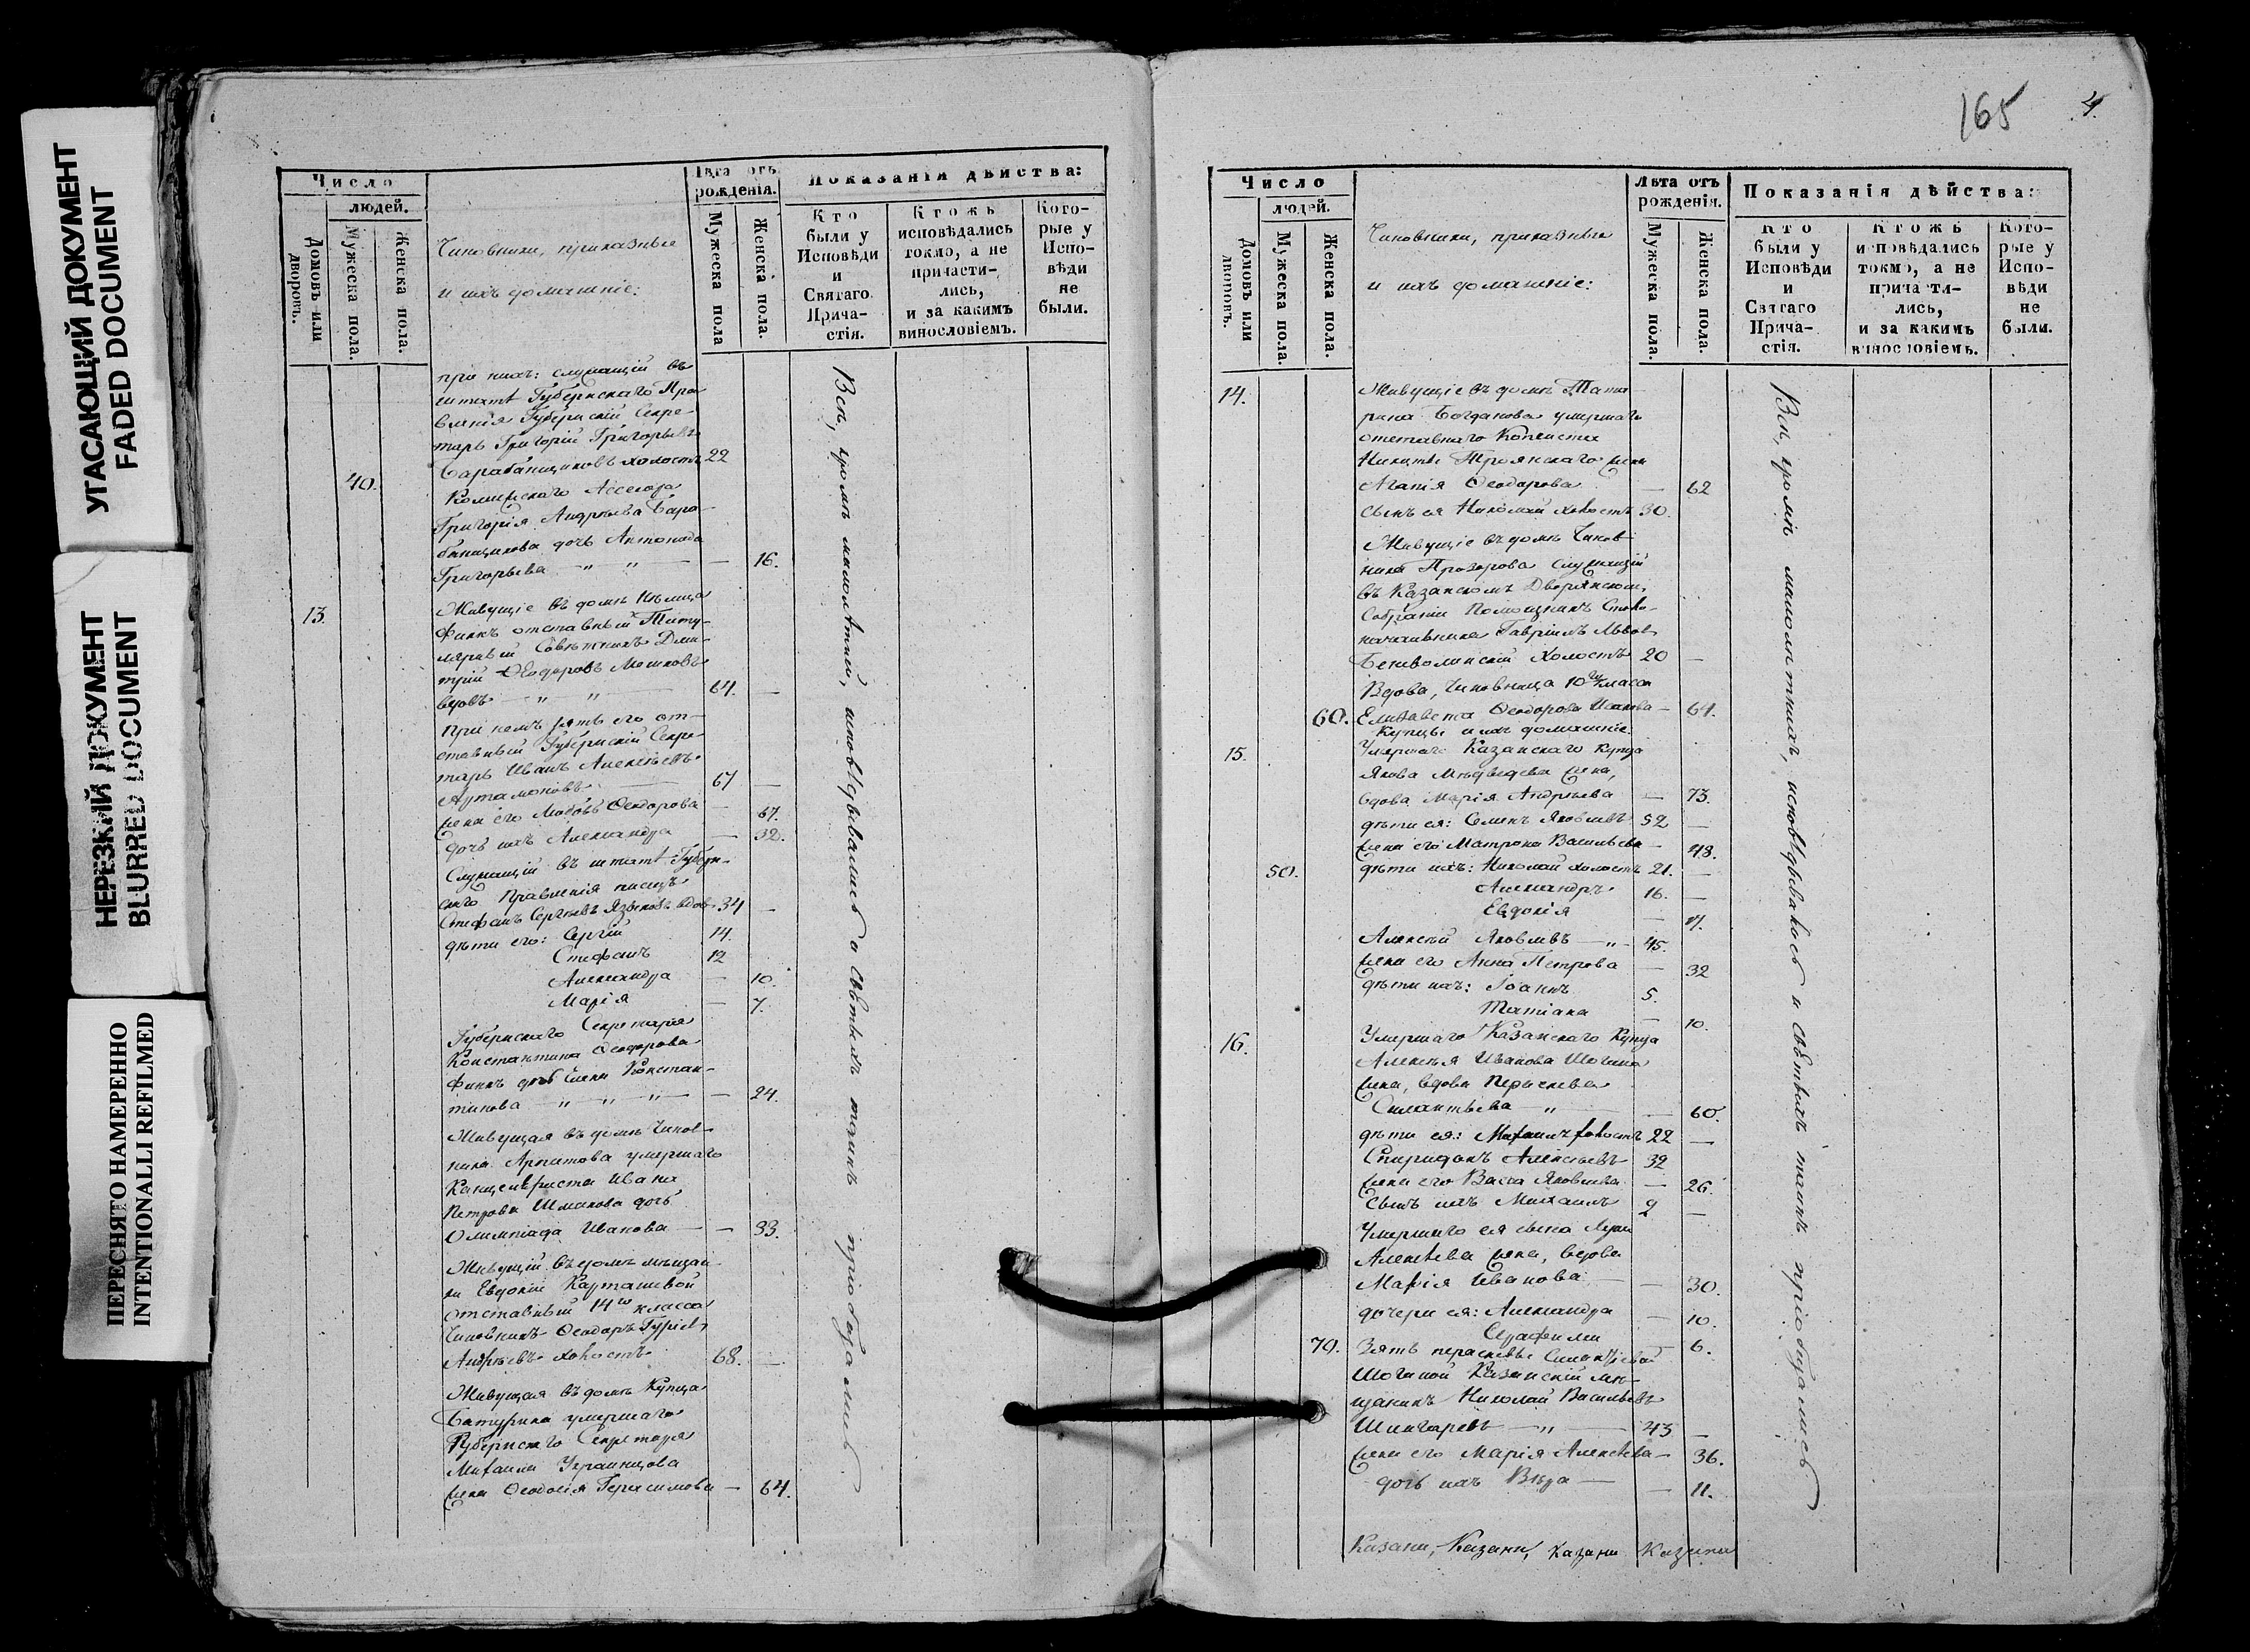 УГАСАЮЩИЙ ДОКУМЕНТ
FADED DOCUMENT
НЕРЕЗКИЙ ДОКУМЕНТ
BLURRED DOCUMENT
ПЕРЕСНЯТО НАМЕРЕННО
INTENTIONALLI REFILMED
Число
людей.
Домовъ или дворовъ.
Мужеска пола.
Женска пола.
Чиновники, приказные
и ихъ домашніе:
Лѣта отъ рожденія.
Мужеска пола
Женска пола.
Показанія дѣйства:
Кто были у Исповѣди и Святаго Прича- стія.
Ктожъ исповѣдались токмо, а не причасти- лись, и за какимъ винословіемъ.
Кото- рые у Испо- вѣди не были.
при нихъ: служащій въ
штатѣ Губернскаго Пра-
вленія Губернскій Секре-
тарь Григорій Григорьевъ
Барабанщиковъ холостъ 22
40.
Коллежскаго Ассесора
Григорія Андреева Бара-
банщикова дочь Антонида
Григорьева — 16.
13. Живущіе въ домѣ Нѣмца
Финкъ отставный Титу-
лярный Совѣтникъ Дми-
трій Ѳеодоровъ Мошковъ
вдовъ 64. —
При немъ зять его от-
ставный Губернскій Секре-
тарь Иванъ Алексѣевъ
Артамоновъ 67 —
жена его Любовь Ѳеодорова — 67.
дочь ихъ Александра — 32.
Служащій въ штатѣ Губерн-
скаго Правленія писецъ
Стефанъ Сергѣевъ Языковъ вдов. 34 —
дѣти его: Сергій 14.
Стефанъ 12
Александра — 10.
Марія — 7.
Губернскаго Секретаря
Константина Ѳеодорова
Финкъ дочь Елена Констан-
тинова — 24.
Живущая въ домѣ Чинов-
ника Архитова умершаго
Канцеляриста Ивана
Петрова Шмакова дочь
Олимпіада Иванова — 33.
Живущій въ домѣ мѣщан-
ки Евдокіи Карташевой
отставный 14го класса
Чиновникъ Ѳеодоръ Гурьевъ
Андреевъ холостъ 68. —
Живущая въ домѣ Купца
Батурина умершаго
Губернскаго Секретаря
Михаила Украинцова
жена Ѳеодосія Герасимова — 64.
Всѣ, кромѣ малолѣтнихъ, исповѣдывались и Святыхъ таинъ пріобщались
165
4.
Число
людей.
Домовъ или дворовъ.
Мужеска пола.
Женска пола.
Чиновники, приказные
и ихъ домашніе:
Лѣта отъ рожденія.
Мужеска пола.
Женска пола.
Показанія дѣйства:
Кто были у Исповѣди и Святаго Прича- стія.
Ктожъ исповѣдались токмо, а не причасти- лись, и за какимъ винословіемъ.
Кото- рые у Испо- вѣди не были.
14. Живущіе въ домѣ Тата-
рина Богданова умершаго
отставнаго Копеиста
Никиты Троянскаго жена
Агапія Ѳеодорова — 62
сынъ ея Николай холостъ 30.
Живущіе въ домѣ Чинов-
ника Прозорова Служащій
въ Казанскомъ Дворянском.
Собраніи Помощникъ Столо-
начальника Гавріилъ Львовъ
Беневоленскій Холостъ 20 —
Вдова, Чиновница 10го класса
60. Елизавета Ѳеодорова Исакова — 64.
Купцы и ихъ домашніе.
15. Умершаго Казанскаго Купца
Якова Медведева жена,
вдова Марія Андреева — 73.
дѣти ея: Семенъ Яковлевъ 52 —
жена его Матрона Васильева — 48.
50. дѣти ихъ: Николай холостъ 21. —
Александръ 16. —
Евдокія —
Алексѣй Яковлевъ 45.
жена его Анна Петрова — 32
дѣти ихъ: Іоаннъ 5.
Татіана — 10.
16. Умершаго Казанскаго Купца
Алексѣя Иванова Шогина
жена, вдова Параскева
Силантьева — 60.
дѣти ея: Михаилъ холостъ 22 —
Спиридонъ Алексѣевъ 32
жена его Васса Яковлева — 26.
Сынъ ихъ Михаилъ 2 —
Умершаго ея сына Луки
Алексѣева жена, вдова
Марія Иванова — 30.
дочери ея: Александра — 10.
Серафима — 6.
70. Зять Параскевы Силантьевой
Шогиной Казанскій мѣ-
щанинъ Николай Васильевъ
Шингаревъ 43 —
жена его Марія Алексѣева — 36.
дочь ихъ Вѣра — 11.
Всѣ, кромѣ малолѣтнихъ, исповѣдывались и Святыхъ таинъ пріобщались
Казани, Казани, Казани Казани